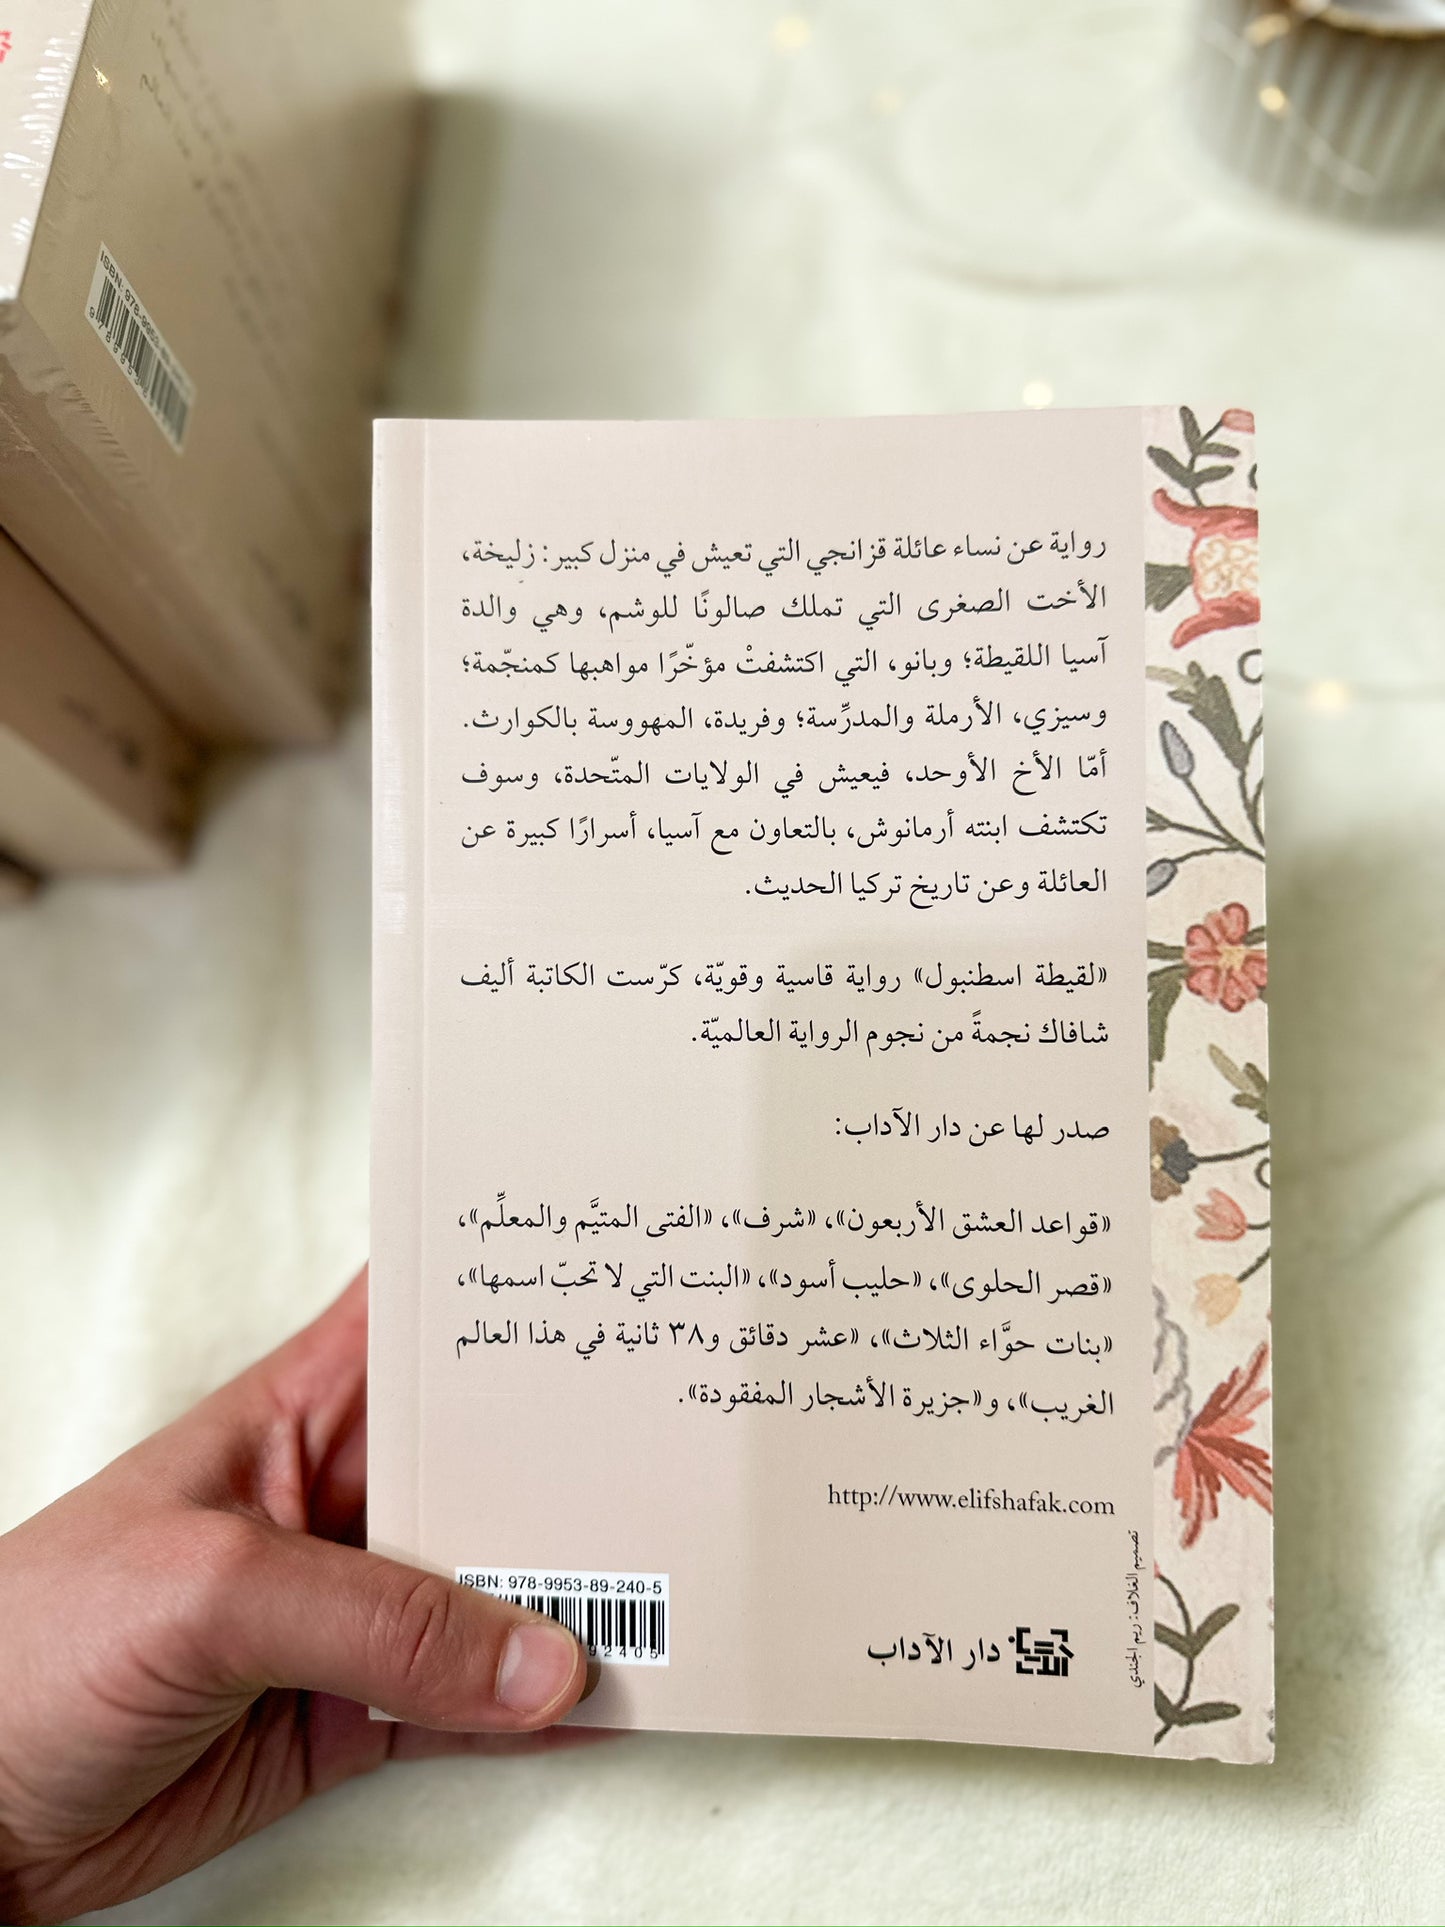 رواية عن نساء عائلة قزانجي التي تعيش في منزل كبير: زليخة،
الأخت الصغرى التي تملك صالونًا للوشم، وهي والدة
آسيا اللقيطة؛ وبانو، التي اكتشفتْ مؤخّرًا مواهبها كمنجّمة؛
وسيزي، الأرملة والمدرِّسة؛ وفريدة، المهووسة بالكوارث.
أمّا الأخ الأوحد، فيعيش في الولايات المتّحدة، وسوف
تكتشف ابنته أرمانوش، بالتعاون مع آسيا، أسرارًا كبيرة عن
العائلة وعن تاريخ تركيا الحديث.
«لقيطة اسطنبول» رواية قاسية وقويّة، كرّست الكاتبة أليف
شافاك نجمةً من نجوم الرواية العالميّة.
صدر لها عن دار الآداب:
«قواعد العشق الأربعون»، «شرف»، «الفتى المتيَّم والمعلِّم»،
«قصر الحلوى»، «حليب أسود»، «البنت التي لا تحبّ اسمها»،
«بنات حوَّاء الثلاث»، «عشر دقائق و٣٨ ثانية في هذا العالم
الغريب»، و«جزيرة الأشجار المفقودة».
http://www.elifshafak.com
تصميم الغلاف: ريم الجندي
ISBN: 978-9953-89-240-5
92405
دار الآداب
ISBN: 978-9953-89